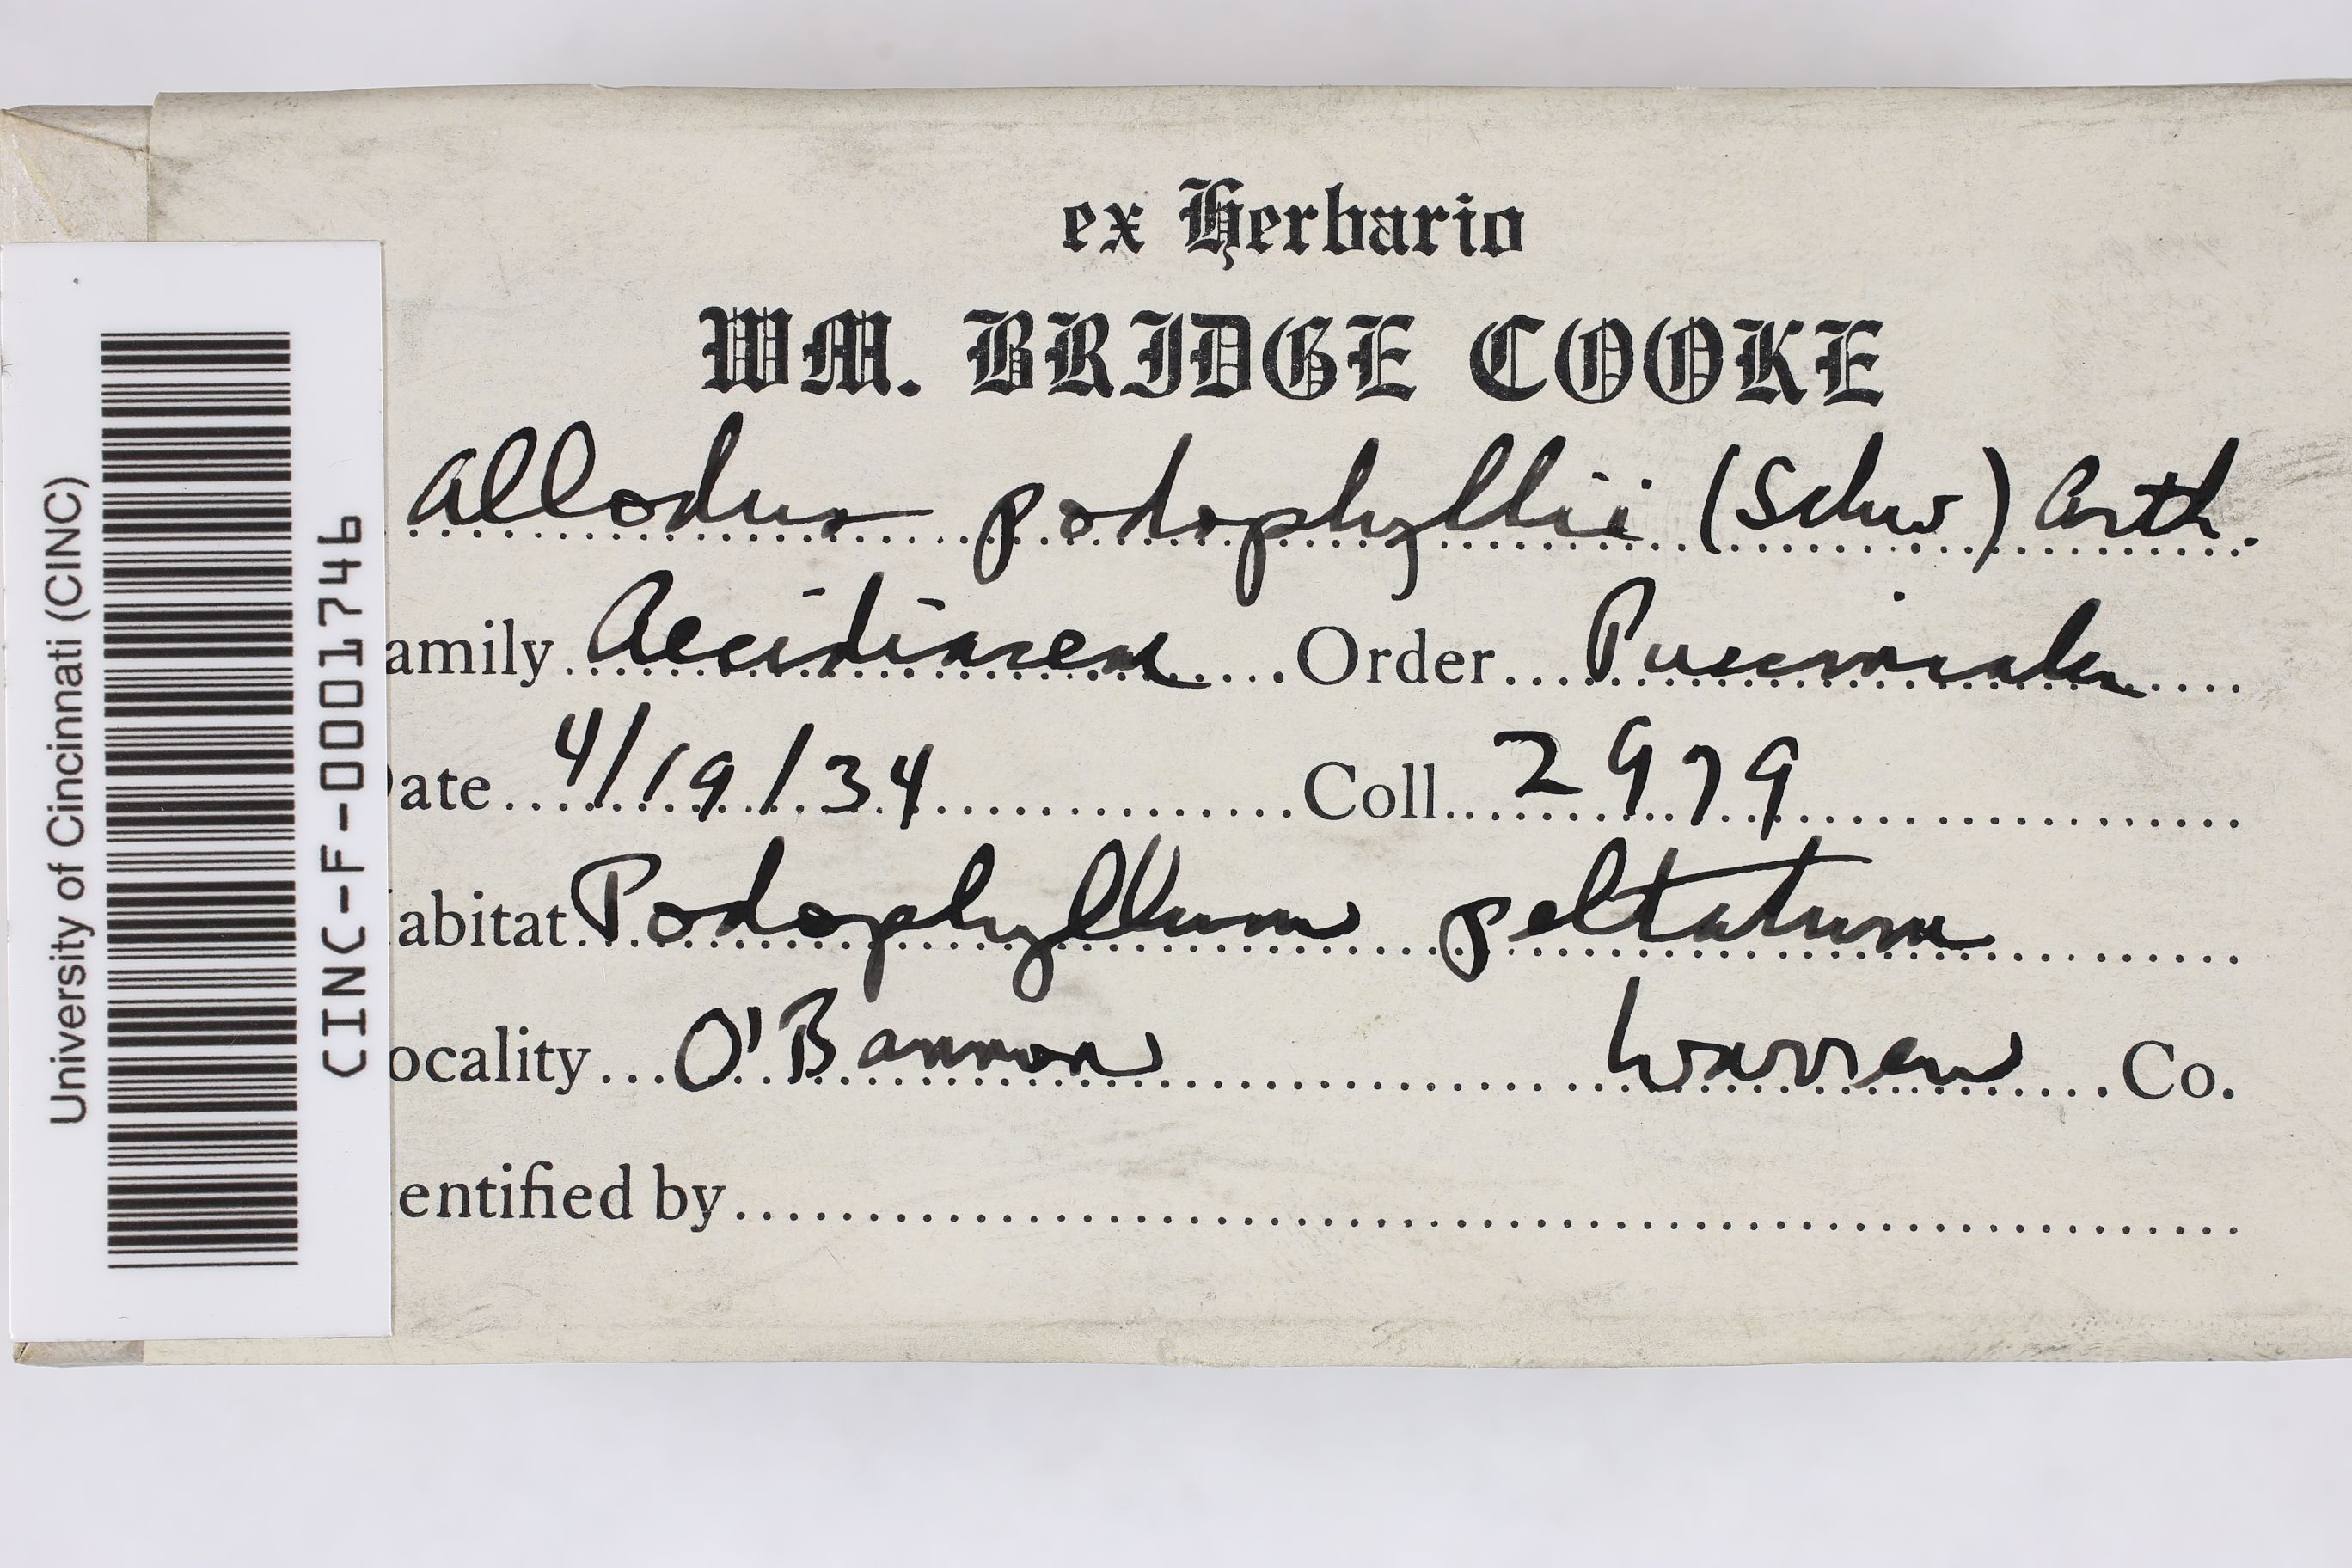 ex Herbario
WM. BRIDGE COOKE
Allodus podophyllii (Schw) Arth.
amily Aecidiaceae Order Pucciniales
Date 4/19/34 Coll. 2979
abitat Podophyllum peltatum
ocality O'Bannon Warren Co.
entified by
University of Cincinnati (CINC)
CINC-F-0001746